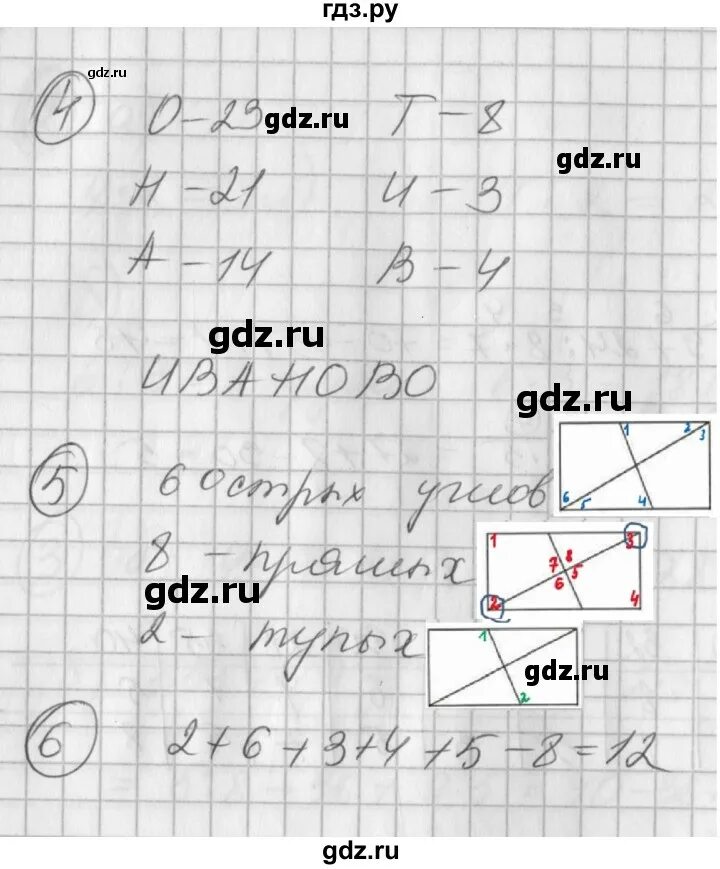 гдз.ру
gdz.ru
4 О - 23 gdz.ru Т - 8
gdz.ru
Н - 21 И - 3
А - 14 В - 4
gdz.ru
gdz.ru
ИВАНОВО
5 6 острых углов
1 2 3
6 5 4
8 - прямых
1 3
7 8
6 5
2 4
gdz.ru
2 - тупых
1
2
gdz.ru
6 2+6+3+4+5-8=12
gdz.ru